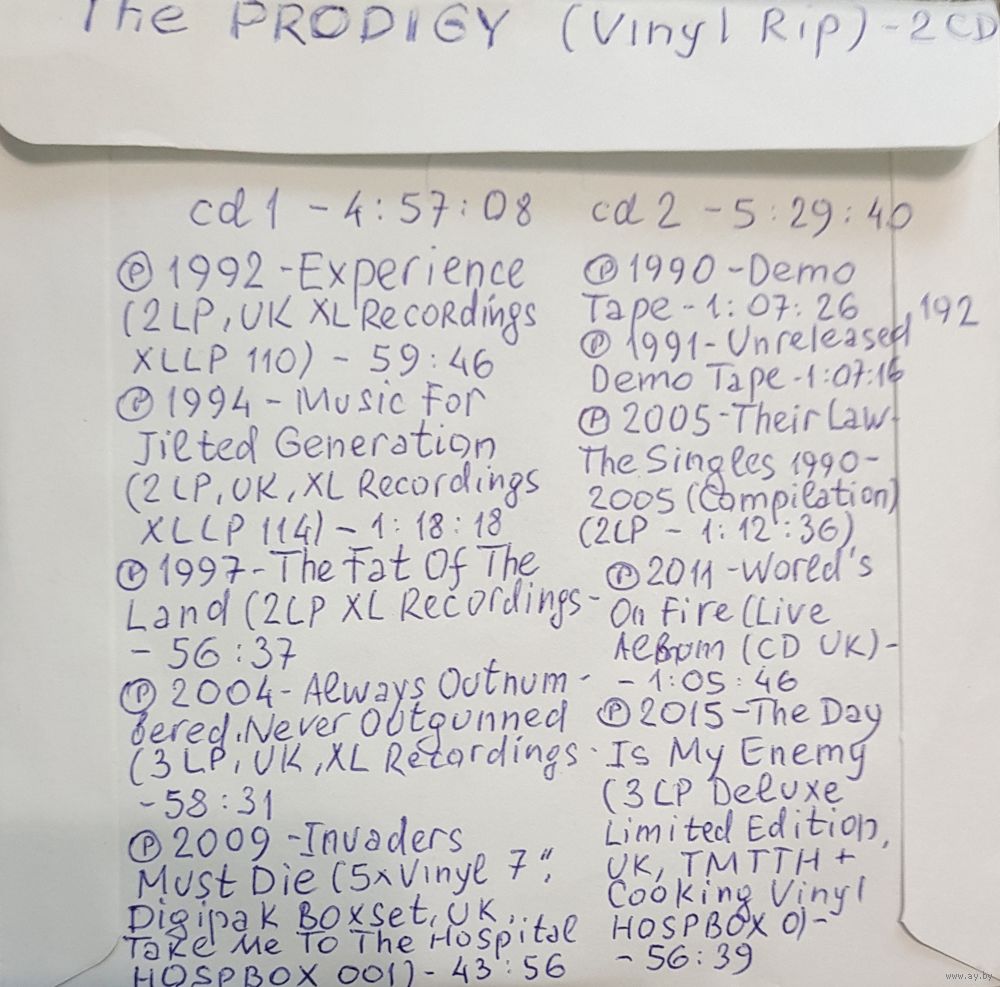 The PRODIGY (Vinyl Rip) - 2CD
cd 1 - 4:57:08
Ⓟ 1992 - Experience
(2LP, UK XL Recordings
XLLP 110) - 59:46
Ⓟ 1994 - Music For
Jilted Generation
(2LP, UK, XL Recordings
XLLP 114) - 1:18:18
Ⓟ 1997 - The Fat Of The
Land (2LP XL Recordings -
- 56:37
Ⓟ 2004 - Always Outnum -
bered, Never Outgunned
(3LP, UK, XL Recordings -
- 58:31
Ⓟ 2009 - Invaders
Must Die (5xVinyl 7",
Digipak Boxset, UK,
Take Me To The Hospital
HOSPBOX 001) - 43:56
cd 2 - 5:29:40
Ⓟ 1990 - Demo
Tape - 1:07:26 ,192
Ⓟ 1991 - Unreleased
Demo Tape - 1:07:16
Ⓟ 2005 - Their Law-
The Singles 1990-
2005 (Compilation)
(2LP - 1:12:36)
Ⓟ 2011 - Woreld's
On Fire (Live
Albom (CD UK) -
- 1:05:46
Ⓟ 2015 - The Day
Is My Enemy
(3LP Deluxe
Limited Edition,
UK, TMTTH +
Cooking Vinyl
HOSPBOX 0) -
- 56:39
www.ay.by